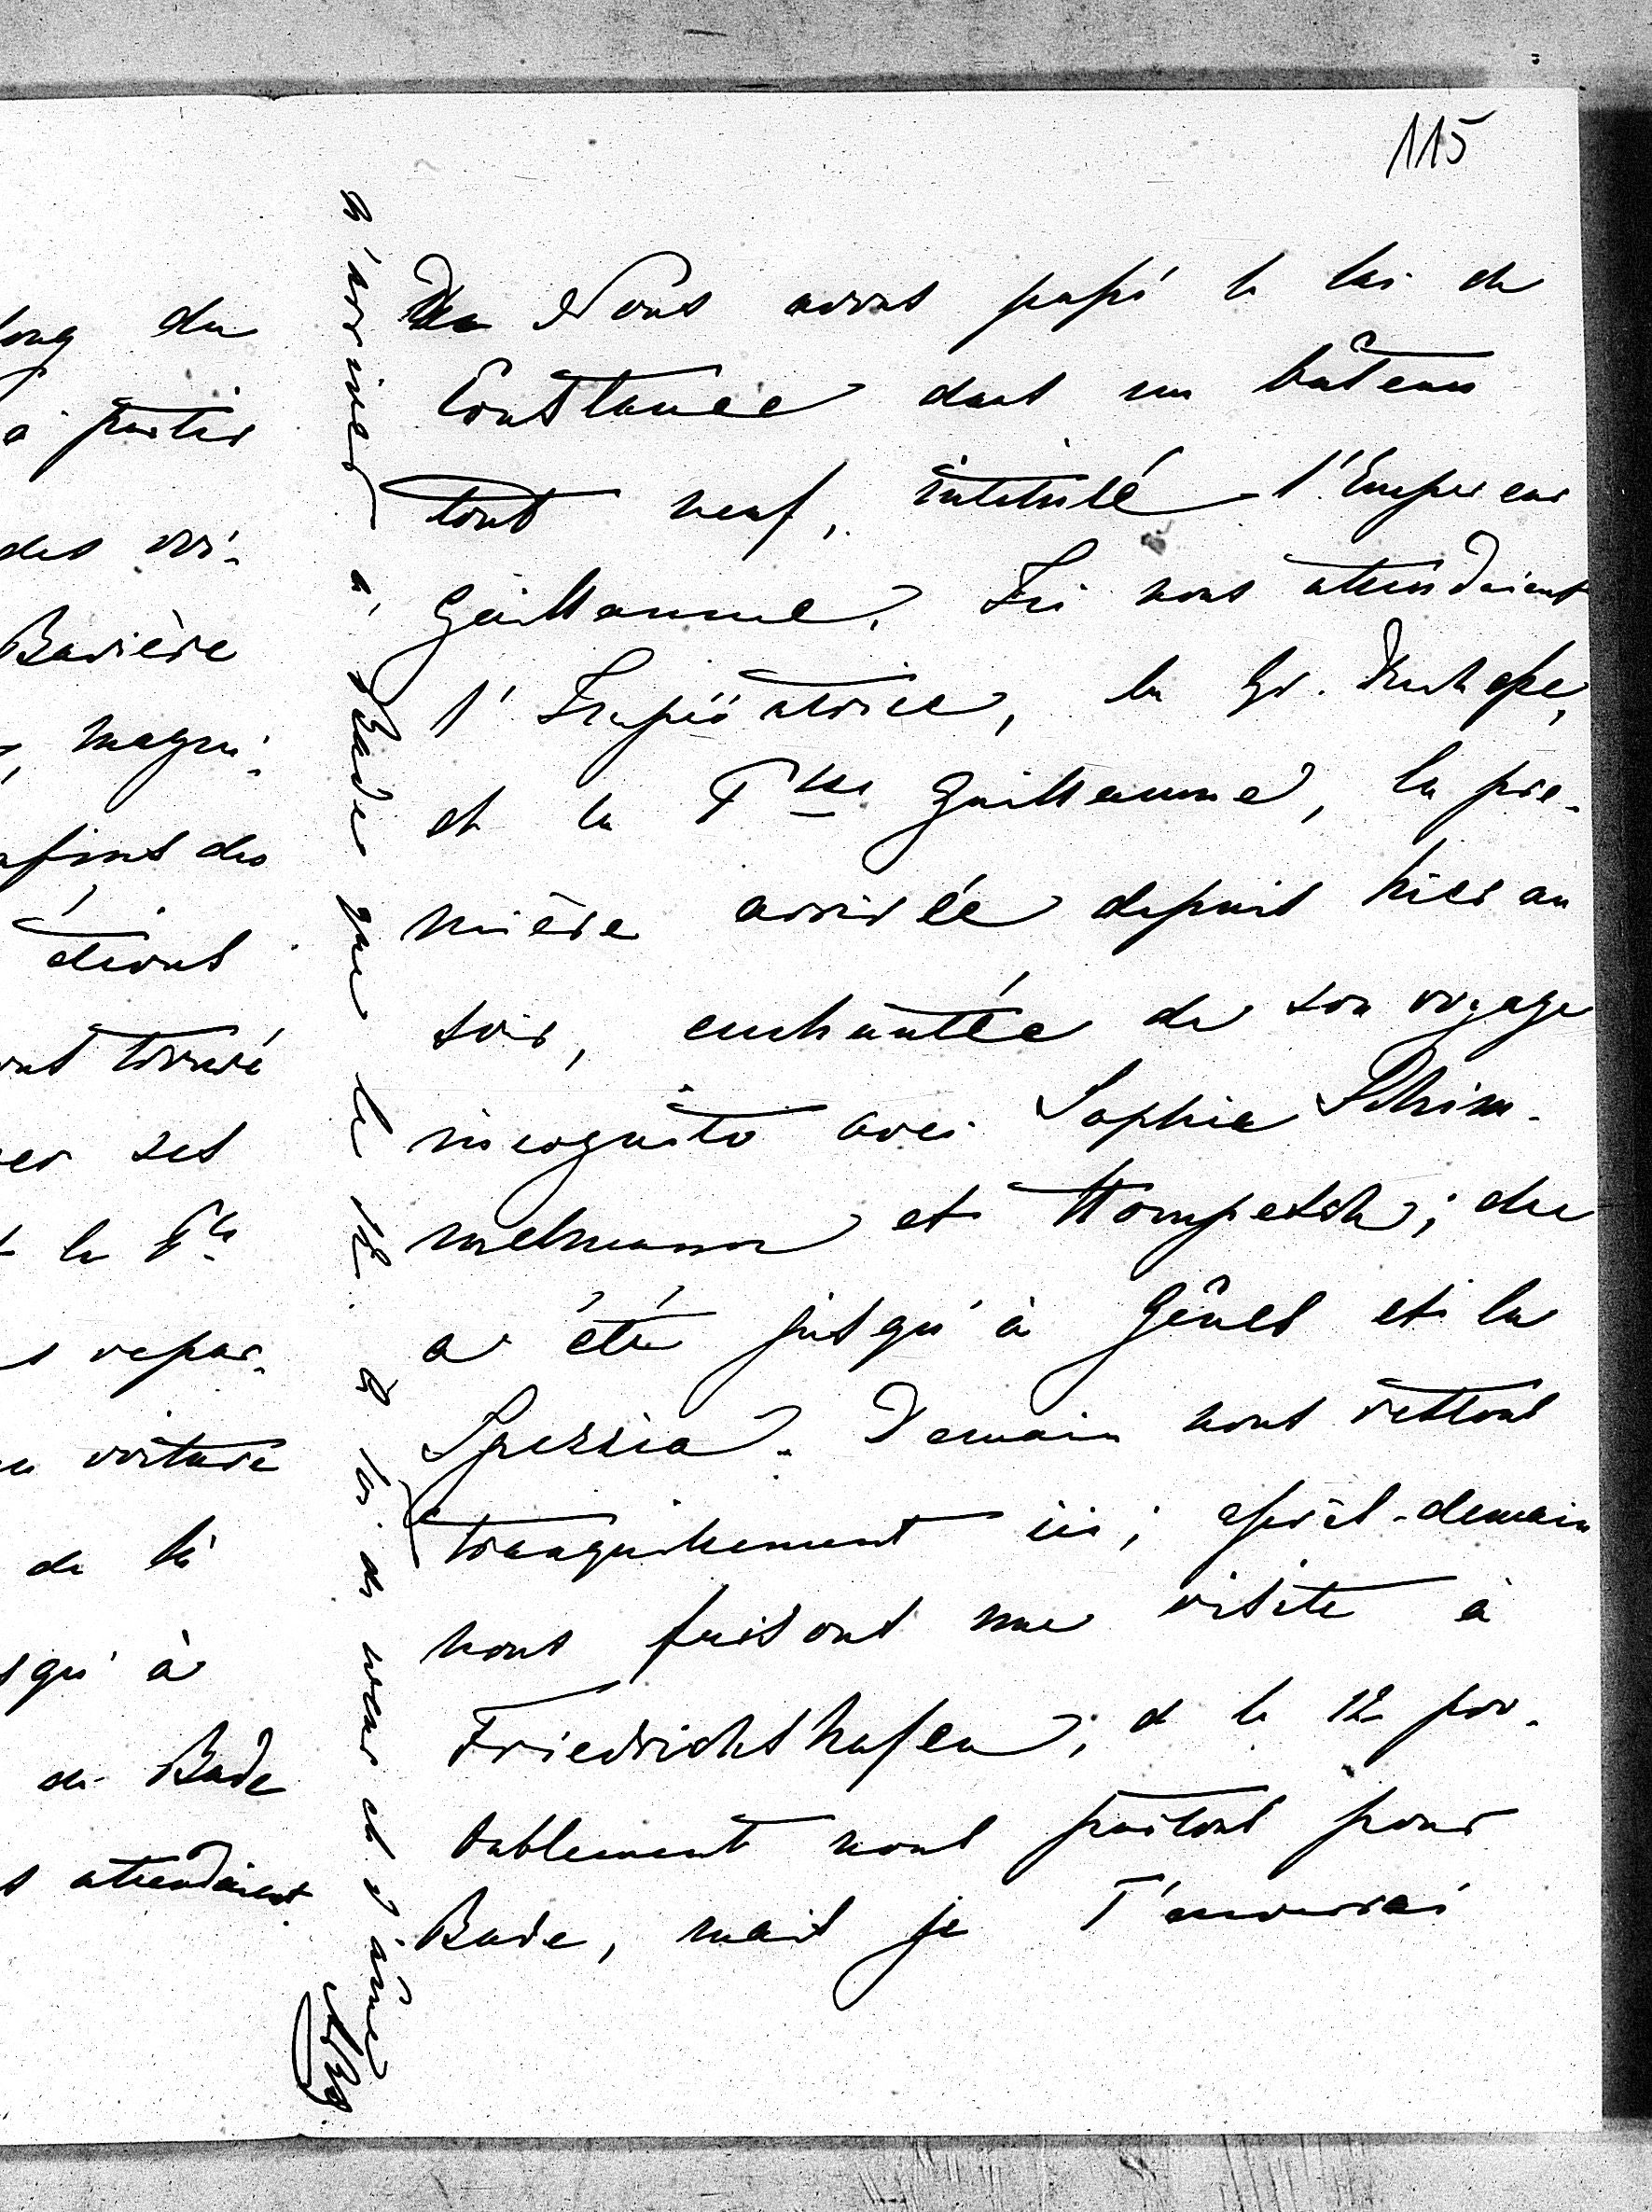 115
long du
à partir
des voi-
Bavière
magni-
des
étions
ont trouvé
ses
la
repar-
voiture
de là
squ'à
de Bade
s attendaient
Nous avons passé le lac de
Constance dans un bâteau
tout neuf, intitulé l'Empereur
Guillaume. Ici nous attendaient
l'Impératrice, la Gr. Duchesse,
et la Psse Guillaume, la pre-
mière arrivée depuis hier au
soir, enchantée de son voyage
incognito avec Sophie Schim-
melmann et Hompesch; elle
a été jusqu'à Gênes et la
Spezzia. Demain nous restons
tranquillement ici; après-demain
nous faisons une visite à
Friedrichshafen; et le 12 pro-
bablement nous partons pour
Bade, mais je T'enverrai
d'arriver à Bade que le 12. à toi de cœur et d'âme